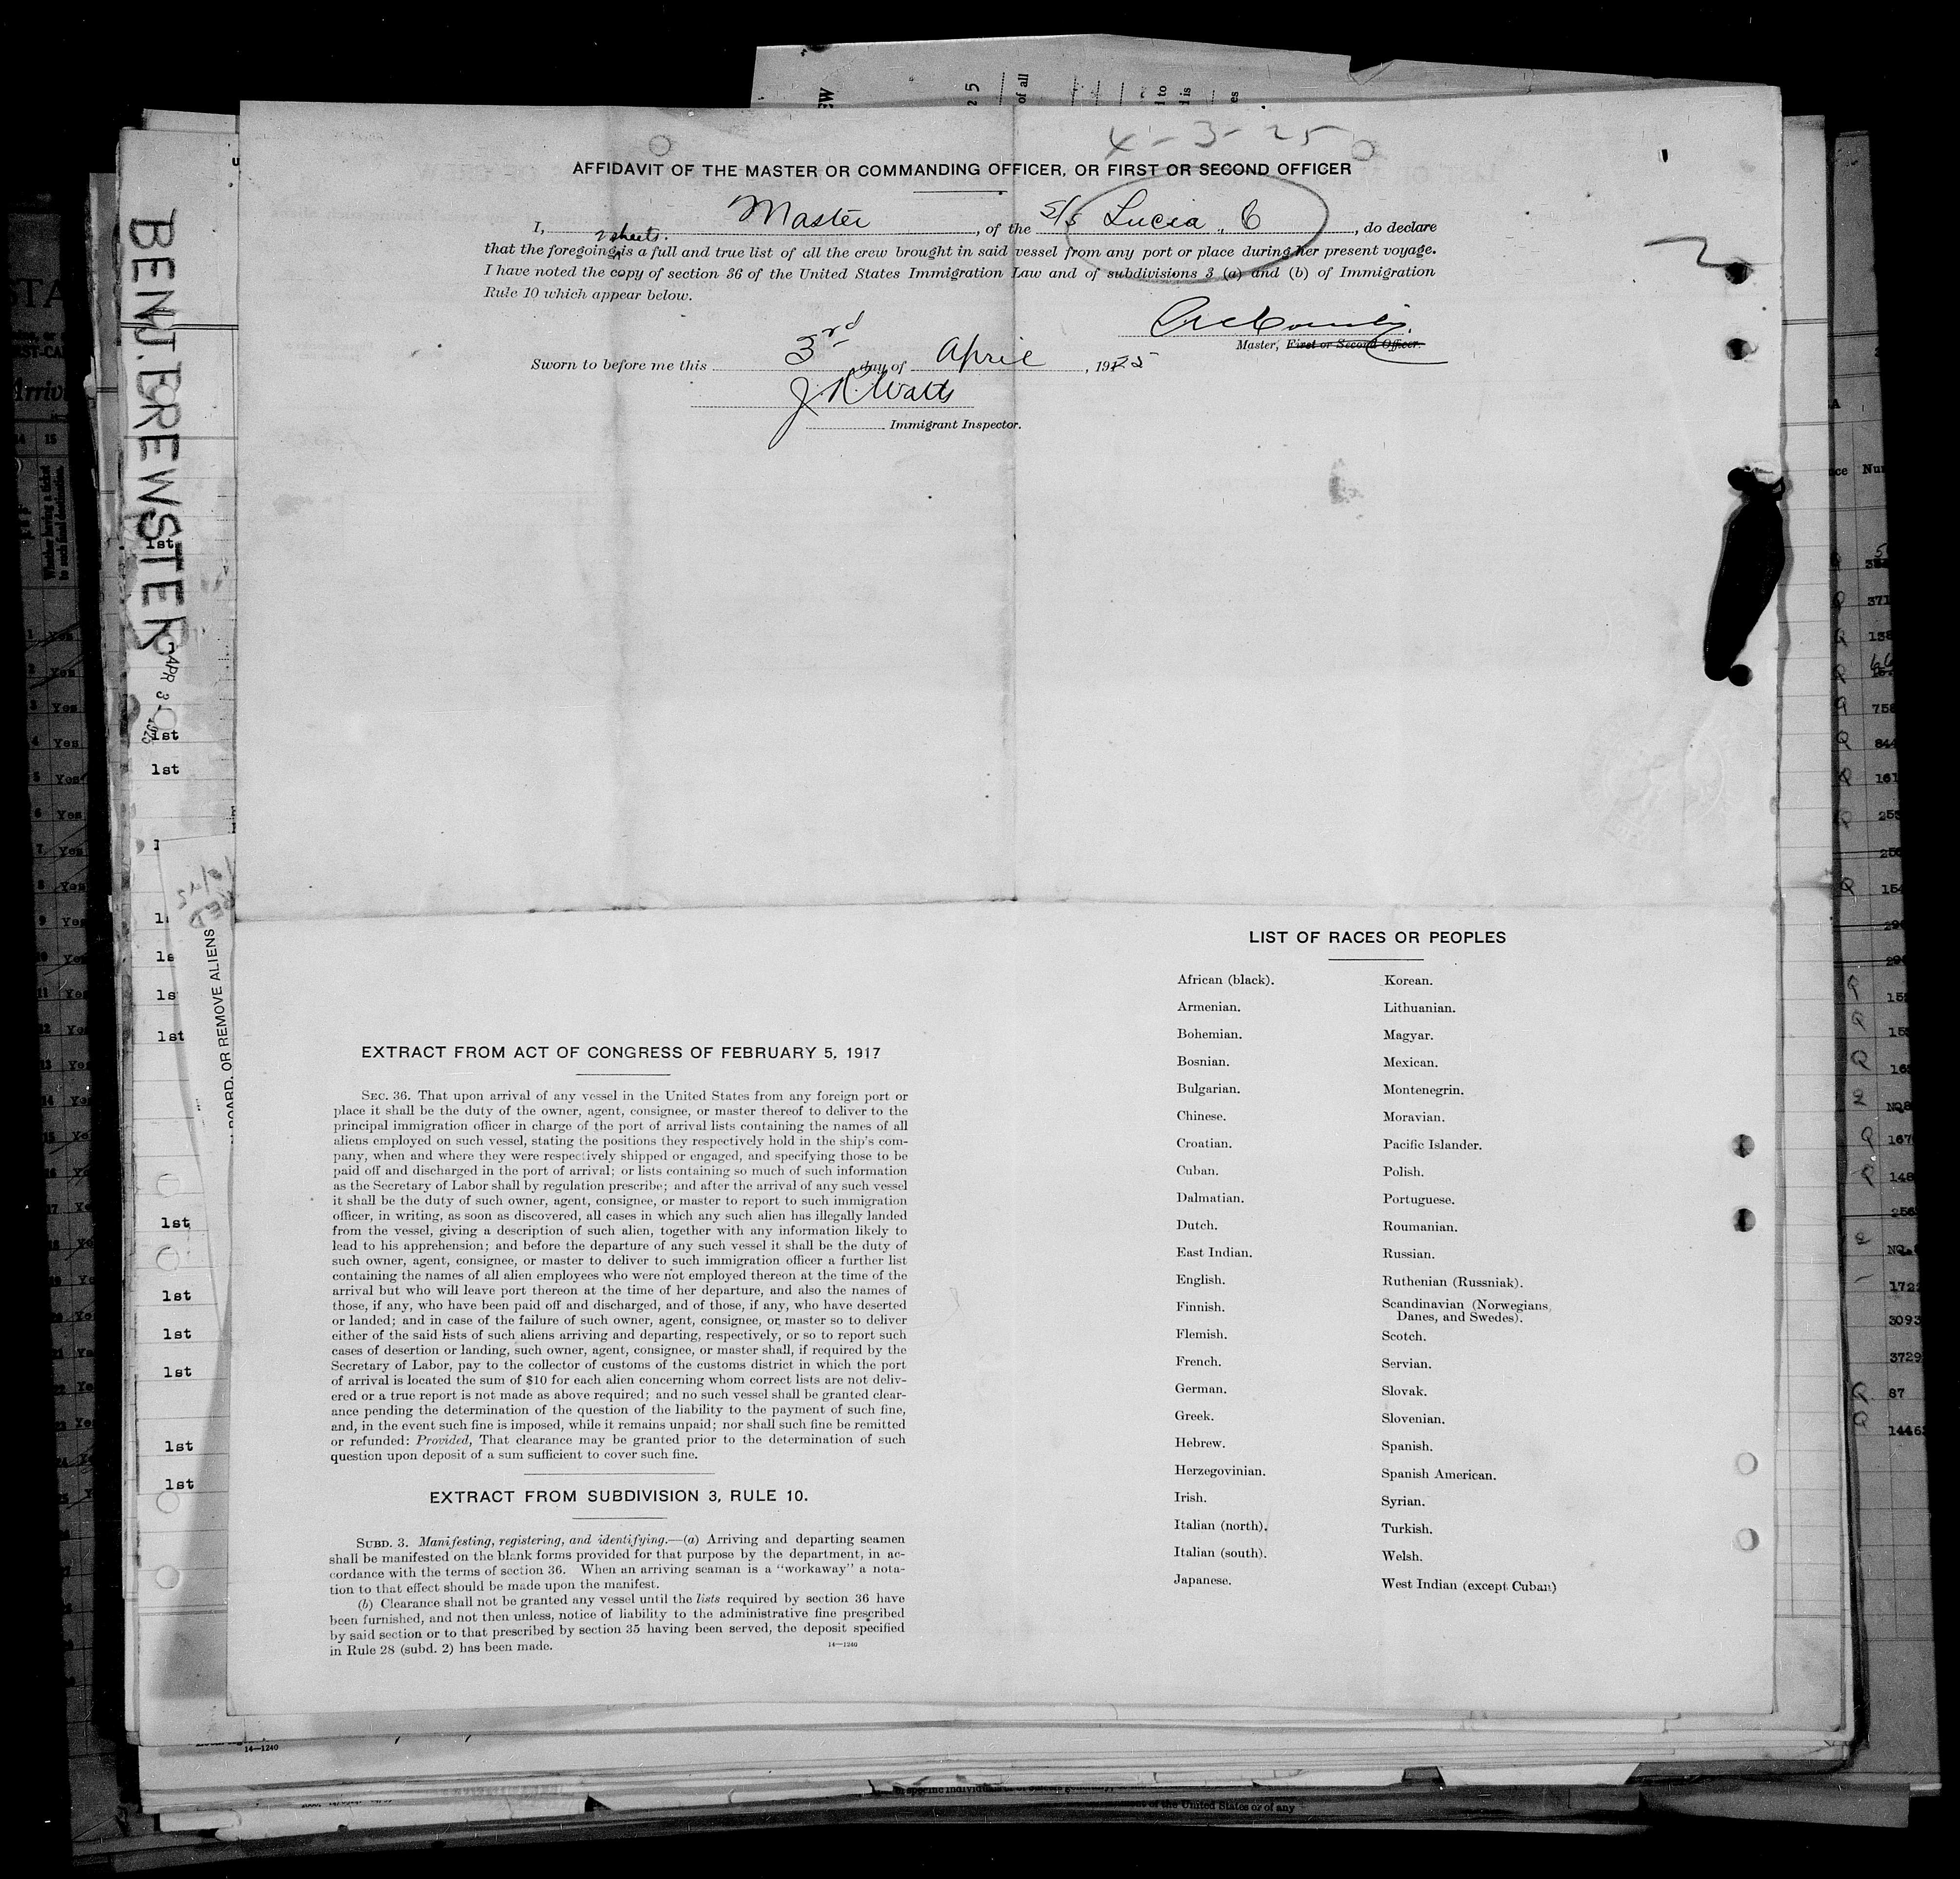 4-3-25
AFFIDAVIT OF THE MASTER OR COMMANDING OFFICER, OR FIRST OR SECOND OFFICER
I, Master, of the S/S Lucia „ C, do declare
2 sheets.
that the foregoing is a full and true list of all the crew brought in said vessel from any port or place during her present voyage.
I have noted the copy of section 36 of the United States Immigration Law and of subdivisions 3 (a) and (b) of Immigration
Rule 10 which appear below.
Master, First or Second Officer.
Sworn to before me this 3rd day of April, 1925
J. R. Watts
Immigrant Inspector.
BENJ. BREWSTER
APR 3 - 1925
1st
1st
1st
1st
1st
1st
1st
1st
1st
1st
1st
BOARD, OR REMOVE ALIENS
EXTRACT FROM ACT OF CONGRESS OF FEBRUARY 5, 1917
SEC. 36. That upon arrival of any vessel in the United States from any foreign port or
place it shall be the duty of the owner, agent, consignee, or master thereof to deliver to the
principal immigration officer in charge of the port of arrival lists containing the names of all
aliens employed on such vessel, stating the positions they respectively hold in the ship's com-
pany, when and where they were respectively shipped or engaged, and specifying those to be
paid off and discharged in the port of arrival; or lists containing so much of such information
as the Secretary of Labor shall by regulation prescribe; and after the arrival of any such vessel
it shall be the duty of such owner, agent, consignee, or master to report to such immigration
officer, in writing, as soon as discovered, all cases in which any such alien has illegally landed
from the vessel, giving a description of such alien, together with any information likely to
lead to his apprehension; and before the departure of any such vessel it shall be the duty of
such owner, agent, consignee, or master to deliver to such immigration officer a further list
containing the names of all alien employees who were not employed thereon at the time of the
arrival but who will leave port thereon at the time of her departure, and also the names of
those, if any, who have been paid off and discharged, and of those, if any, who have deserted
or landed; and in case of the failure of such owner, agent, consignee, or master so to deliver
either of the said lists of such aliens arriving and departing, respectively, or so to report such
cases of desertion or landing, such owner, agent, consignee, or master shall, if required by the
Secretary of Labor, pay to the collector of customs of the customs district in which the port
of arrival is located the sum of $10 for each alien concerning whom correct lists are not deliv-
ered or a true report is not made as above required; and no such vessel shall be granted clear-
ance pending the determination of the question of the liability to the payment of such fine,
and, in the event such fine is imposed, while it remains unpaid; nor shall such fine be remitted
or refunded: Provided, That clearance may be granted prior to the determination of such
question upon deposit of a sum sufficient to cover such fine.
EXTRACT FROM SUBDIVISION 3, RULE 10.
SUBD. 3. Manifesting, registering, and identifying.—(a) Arriving and departing seamen
shall be manifested on the blank forms provided for that purpose by the department, in ac-
cordance with the terms of section 36. When an arriving seaman is a "workaway" a nota-
tion to that effect should be made upon the manifest.
(b) Clearance shall not be granted any vessel until the lists required by section 36 have
been furnished, and not then unless, notice of liability to the administrative fine prescribed
by said section or to that prescribed by section 35 having been served, the deposit specified
in Rule 28 (subd. 2) has been made.
14—1240
LIST OF RACES OR PEOPLES
African (black).
Armenian.
Bohemian.
Bosnian.
Bulgarian.
Chinese.
Croatian.
Cuban.
Dalmatian.
Dutch.
East Indian.
English.
Finnish.
Flemish.
French.
German.
Greek.
Hebrew.
Herzegovinian.
Irish.
Italian (north).
Italian (south).
Japanese.
Korean.
Lithuanian.
Magyar.
Mexican.
Montenegrin.
Moravian.
Pacific Islander.
Polish.
Portuguese.
Roumanian.
Russian.
Ruthenian (Russniak).
Scandinavian (Norwegians,
Danes, and Swedes).
Scotch.
Servian.
Slovak.
Slovenian.
Spanish.
Spanish American.
Syrian.
Turkish.
Welsh.
West Indian (except Cuban)
14—1240
of the United States or of any